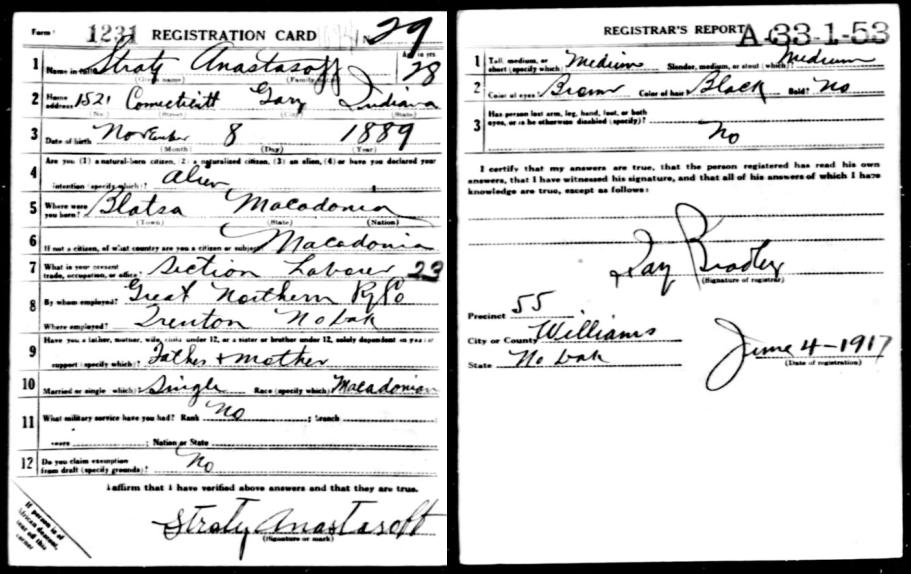 Form 1231 REGISTRATION CARD No. 29
1 Name in full Straty Anastasoff Age in yrs. 28
(Given name) (Family name)
2 Home address 1521 Conneticutt Gary Indiana
(No.) (Street) (City) (State)
3 Date of birth November 8 1889
(Month) (Day) (Year)
Are you (1) a natural-born citizen, (2) a naturalized citizen, (3) an alien, (4) or have you declared your
4 intention (specify which)? Alien
5 Where were you born? Blatsa Macadonia
(Town) (State) (Nation)
6 If not a citizen, of what country are you a citizen or subject? Macadonia
7 What is your present trade, occupation, or office? Section Laborer 23
8 By whom employed? Great Northern Ry Co
Where employed? Trenton No Dak
Have you a father, mother, wife, child under 12, or a sister or brother under 12, solely dependent on you for
9 support (specify which)? Father + mother
10 Married or single (which)? Single Race (specify which)? Macadonian
11 What military service have you had? Rank No ; branch
years ; Nation or State
12 Do you claim exemption from draft (specify grounds)? No
I affirm that I have verified above answers and that they are true.
Straty Anastasoff
(Signature or mark)
If person is of African descent, tear off this corner
REGISTRAR'S REPORT A-33-1-53
1 Tall, medium, or short (specify which)? Medium Slender, medium, or stout (which)? Medium
2 Color of eyes? Brown Color of hair? Black Bald? No
3 Has person lost arm, leg, hand, foot, or both eyes, or is he otherwise disabled (specify)? No
I certify that my answers are true, that the person registered has read his own
answers, that I have witnessed his signature, and that all of his answers of which I have
knowledge are true, except as follows:
Ray Bradley
(Signature of registrar)
Precinct 55
City or County Williams
State No Dak
June 4-1917
(Date of registration)